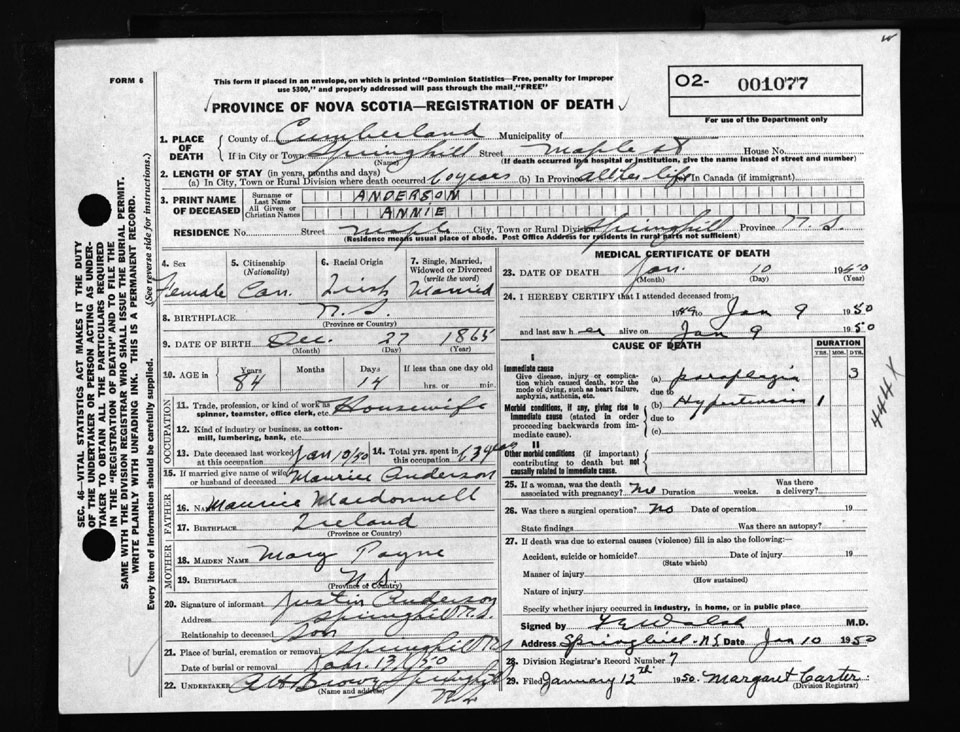 FORM 6
This form if placed in an envelope, on which is printed "Dominion Statistics—Free, penalty for improper
use $300," and properly addressed will pass through the mail "FREE"
O2- 001077
For use of the Department only
PROVINCE OF NOVA SCOTIA—REGISTRATION OF DEATH
1. PLACE OF DEATH
County of Cumberland Municipality of
If in City or Town Springhill Street Maple St House No.
(Name) (If death occurred in a hospital or institution, give the name instead of street and number)
2. LENGTH OF STAY (in years, months and days)
(a) In City, Town or Rural Division where death occurred 60 years (b) In Province All her life In Canada (if immigrant)
3. PRINT NAME OF DECEASED
Surname or Last Name ANDERSON
All Given or Christian Names ANNIE
RESIDENCE No. Street Maple City, Town or Rural Div. Springhill Province N.S.
(Residence means usual place of abode. Post Office Address for residents in rural parts not sufficient)
4. Sex Female
5. Citizenship (Nationality) Can.
6. Racial Origin Irish
7. Single, Married, Widowed or Divorced (write the word) Married
8. BIRTHPLACE N.S.
(Province or Country)
9. DATE OF BIRTH Dec. 27 1865
(Month) (Day) (Year)
10. AGE in Years 84 Months Days 14 If less than one day old hrs. or min.
OCCUPATION
11. Trade, profession or kind of work as spinner, teamster, office clerk, etc. Housewife
12. Kind of industry or business, as cotton-mill, lumbering, bank, etc.
13. Date deceased last worked at this occupation Jan 10/50 14. Total yrs. spent in this occupation
15. If married give name of wife or husband of deceased Maurice Anderson
FATHER
16. NAME Maurice Macdonnell
17. BIRTHPLACE Ireland
(Province or Country)
MOTHER
18. MAIDEN NAME Mary Payne
19. BIRTHPLACE N.S.
(Province or Country)
20. Signature of informant Justin Anderson
Address Springhill N.S.
Relationship to deceased Son
21. Place of burial, cremation or removal Springhill N.S.
Date of burial or removal Jan. 13/50
22. UNDERTAKER Brown Springhill
(Name and address) N.S.
MEDICAL CERTIFICATE OF DEATH
23. DATE OF DEATH Jan. 10 1950
(Month) (Day)
24. I HEREBY CERTIFY that I attended deceased from:
1949 to Jan 9 1950
and last saw her alive on Jan 9 1950
CAUSE OF DEATH
DURATION
YRS. MOS. DYS.
I
Immediate cause
Give disease, injury or complication which caused death, NOT the mode of dying, such as heart failure, asphyxia, asthenia, etc.
(a) paraplegia 3
due to
Morbid conditions, if any, giving rise to Immediate cause (stated in order proceeding backwards from immediate cause).
(b) Hypertension 1
due to
(c)
II
Other morbid conditions (if important) contributing to death but not causally related to immediate cause.
444X
25. If a woman, was the death associated with pregnancy? No Duration weeks. Was there a delivery?
26. Was there a surgical operation? No Date of operation 19
State findings Was there an autopsy?
27. If death was due to external causes (violence) fill in also the following:—
Accident, suicide or homicide? Date of injury 19
(State which)
Manner of injury
(How sustained)
Nature of injury
Specify whether injury occurred in industry, in home, or in public place
Signed by Walsh M.D.
Address Springhill - N.S. Date Jan 10 1950
28. Division Registrar's Record Number 7
29. Filed January 12th 1950. Margaret Carter
(Division Registrar)
SEC. 46—VITAL STATISTICS ACT MAKES IT THE DUTY
OF THE UNDERTAKER OR PERSON ACTING AS UNDER-
TAKER TO OBTAIN ALL THE PARTICULARS REQUIRED
IN THE "REGISTRATION OF DEATH" AND TO FILE THE
SAME WITH THE DIVISION REGISTRAR WHO SHALL ISSUE THE BURIAL PERMIT.
WRITE PLAINLY WITH UNFADING INK. THIS IS A PERMANENT RECORD.
Every item of information should be carefully supplied. (See reverse side for instructions.)